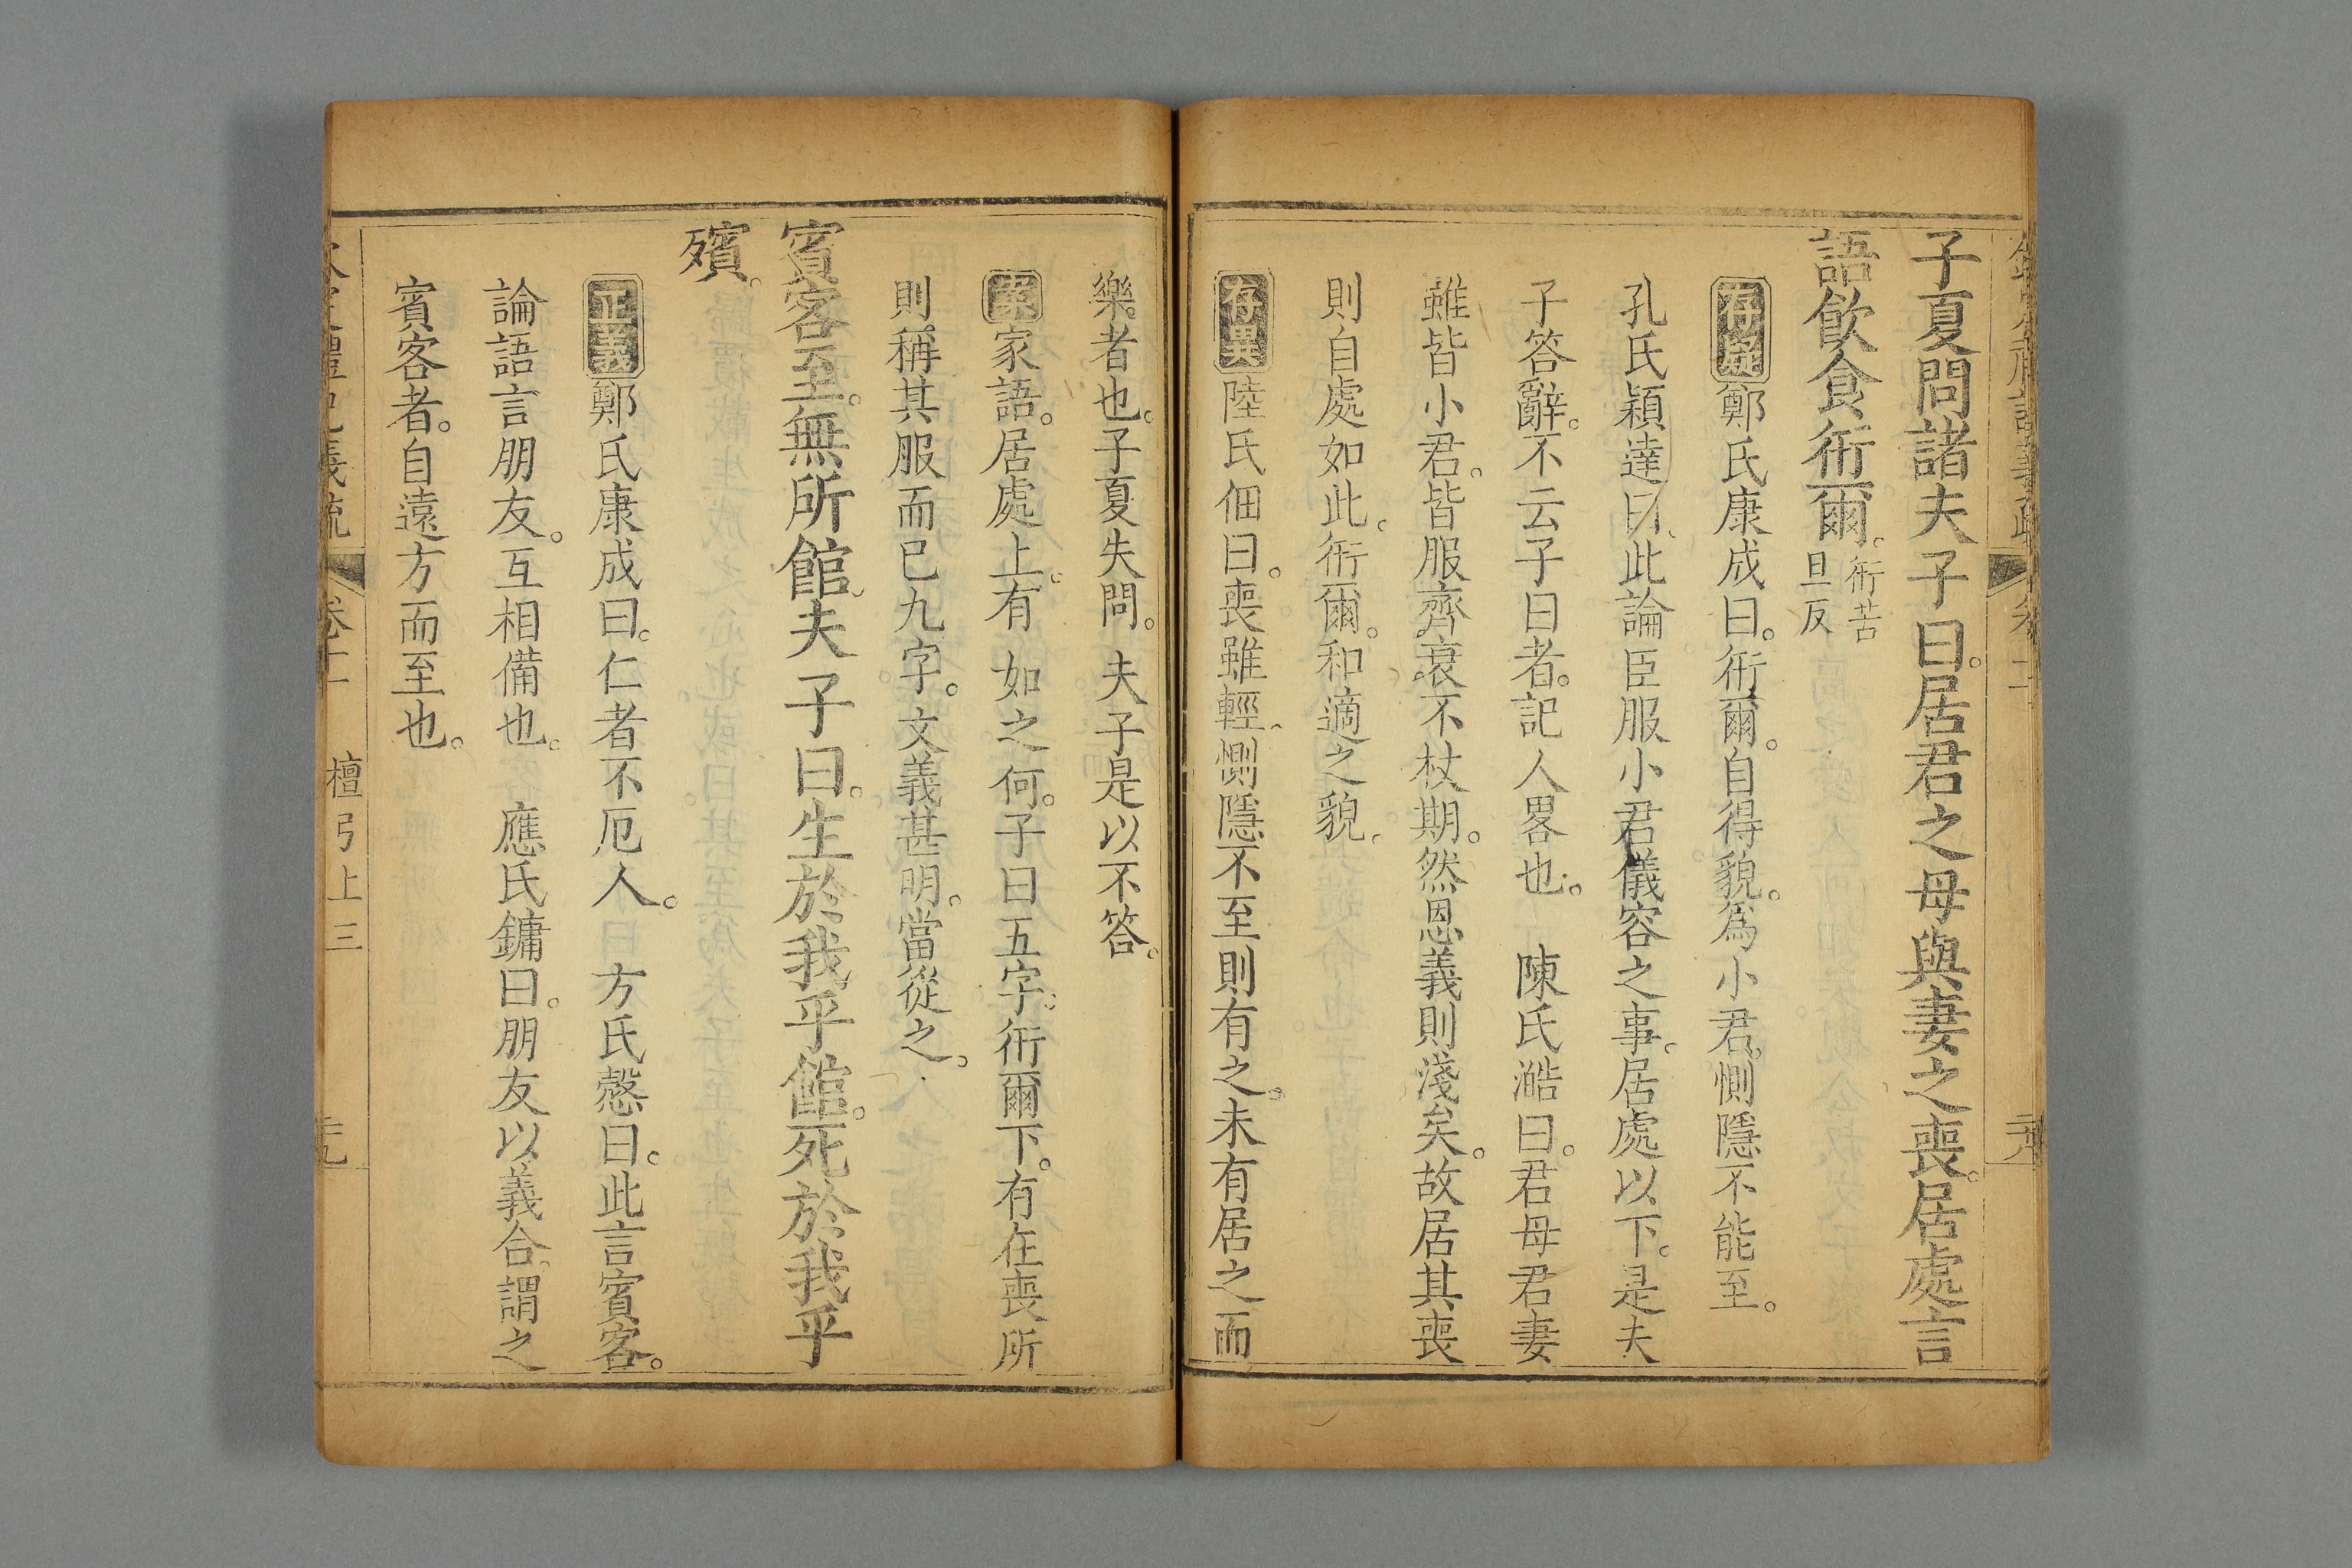 子夏問諸夫子曰。居君之母與妻之喪。居處言
語飲食衎爾。衎苦
旦反
存疑鄭氏康成曰。衎爾。自得貌。爲小君。惻隱不能至。
孔氏穎達曰、此論臣服小君儀容之事。居處以下。是夫
子答辭。不云子曰者。記人畧也。 陳氏澔曰。君母君妻
雖皆小君。皆服齊衰不杖期。然恩義則淺矣。故居其喪
則自處如此。衎爾。和適之貌。
存異陸氏佃曰。喪雖輕。惻隱不至則有之。未有居之而
樂者也。子夏失問。夫子是以不答。
案家語。居處上。有如之何。子曰五字。衎爾下。有在喪所
則稱其服而已九字。文義甚明。當從之。
賓客至。無所館。夫子曰。生於我乎館。死於我乎
殯。
正義鄭氏康成曰。仁者不厄人。 方氏慤曰。此言賓客。
論語言朋友。互相備也。 應氏鏞曰。朋友以義合。謂之
賓客者。自遠方而至也。
禮記義疏 卷十一 檀弓上三